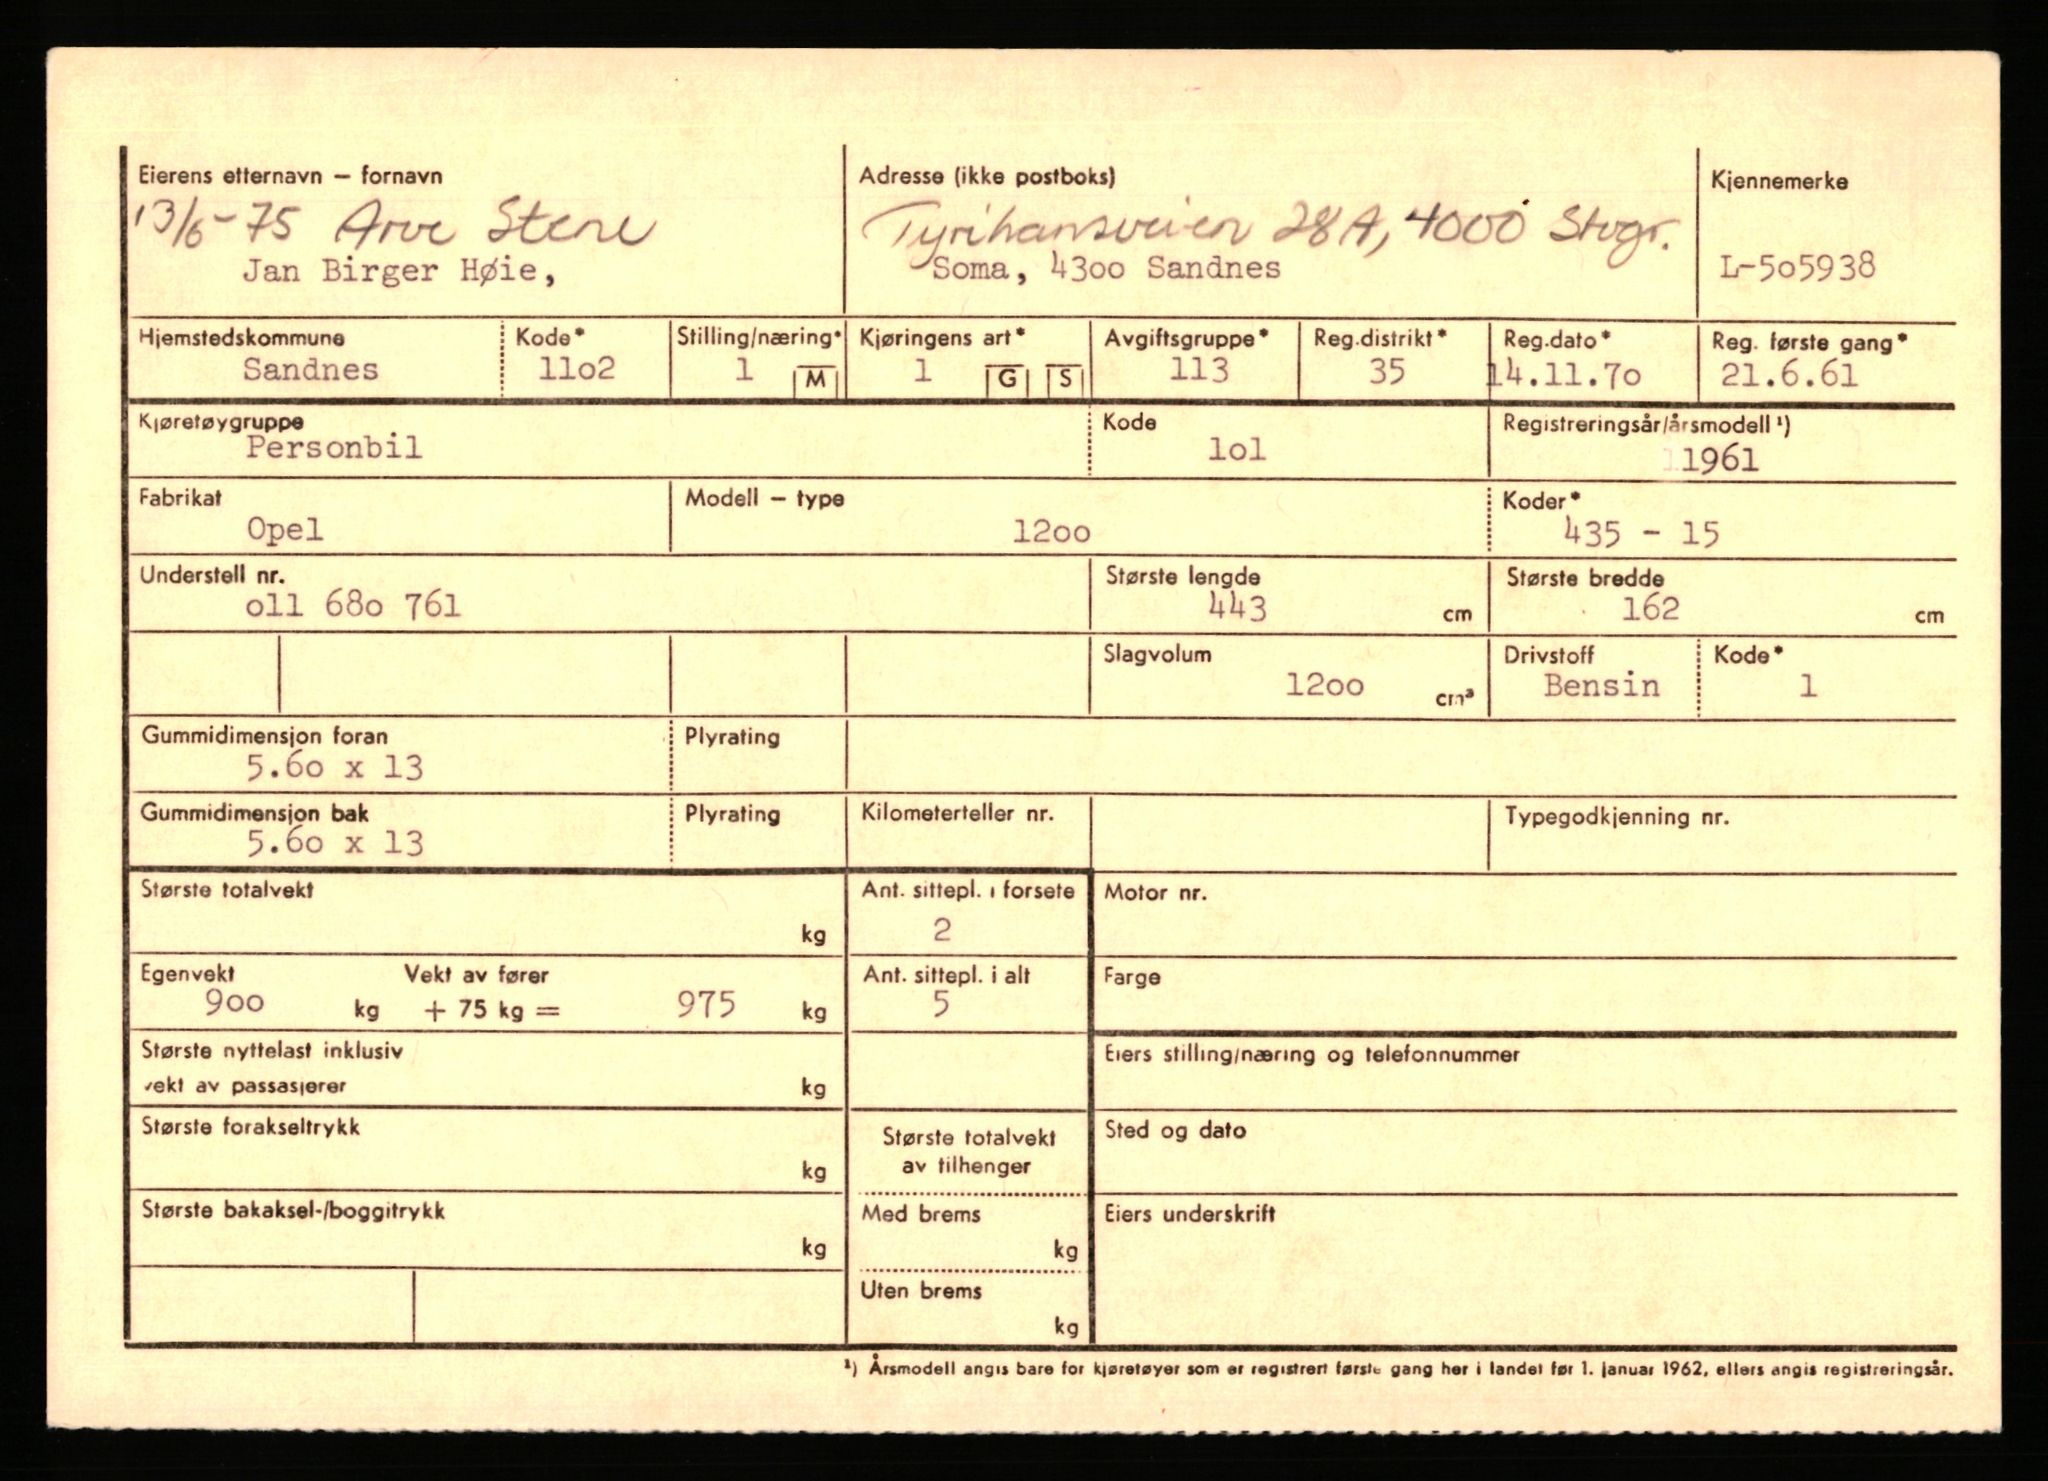 Eierens etternavn – fornavn
Adresse (ikke postboks)
Kjennemerke
13/6-75 Arve Stene
Tyrihansveien 28A, 4000 Stvgr.
Jan Birger Høie,
Soma, 43oo Sandnes
L-5o5938
Hjemstedskommune
Kode*
Stilling/næring*
Kjøringens art*
Avgiftsgruppe*
Reg.distrikt*
Reg.dato*
Reg. første gang*
Sandnes
11o2
1 M
1 G S
113
35
14.11.7o
21.6.61
Kjøretøygruppe
Kode
Registreringsår/årsmodell ¹)
Personbil
1o1
1961
Fabrikat
Modell – type
Koder*
Opel
12oo
435 - 15
Understell nr.
Største lengde
Største bredde
o11 68o 761
443 cm
162 cm
Slagvolum
Drivstoff
Kode*
12oo cm³
Bensin
1
Gummidimensjon foran
Plyrating
5.6o x 13
Gummidimensjon bak
Plyrating
Kilometerteller nr.
Typegodkjenning nr.
5.6o x 13
Største totalvekt
Ant. sittepl. i forsete
Motor nr.
kg
2
Egenvekt
Vekt av fører
Ant. sittepl. i alt
Farge
9oo kg + 75 kg = 975 kg
5
Største nyttelast inklusiv
Eiers stilling/næring og telefonnummer
vekt av passasjerer kg
Største forakseltrykk
Største totalvekt
Sted og dato
av tilhenger
kg
Største bakaksel-/boggitrykk
Med brems
Eiers underskrift
kg
kg
Uten brems
kg
¹) Årsmodell angis bare for kjøretøyer som er registrert første gang her i landet før 1. januar 1962, ellers angis registreringsår.